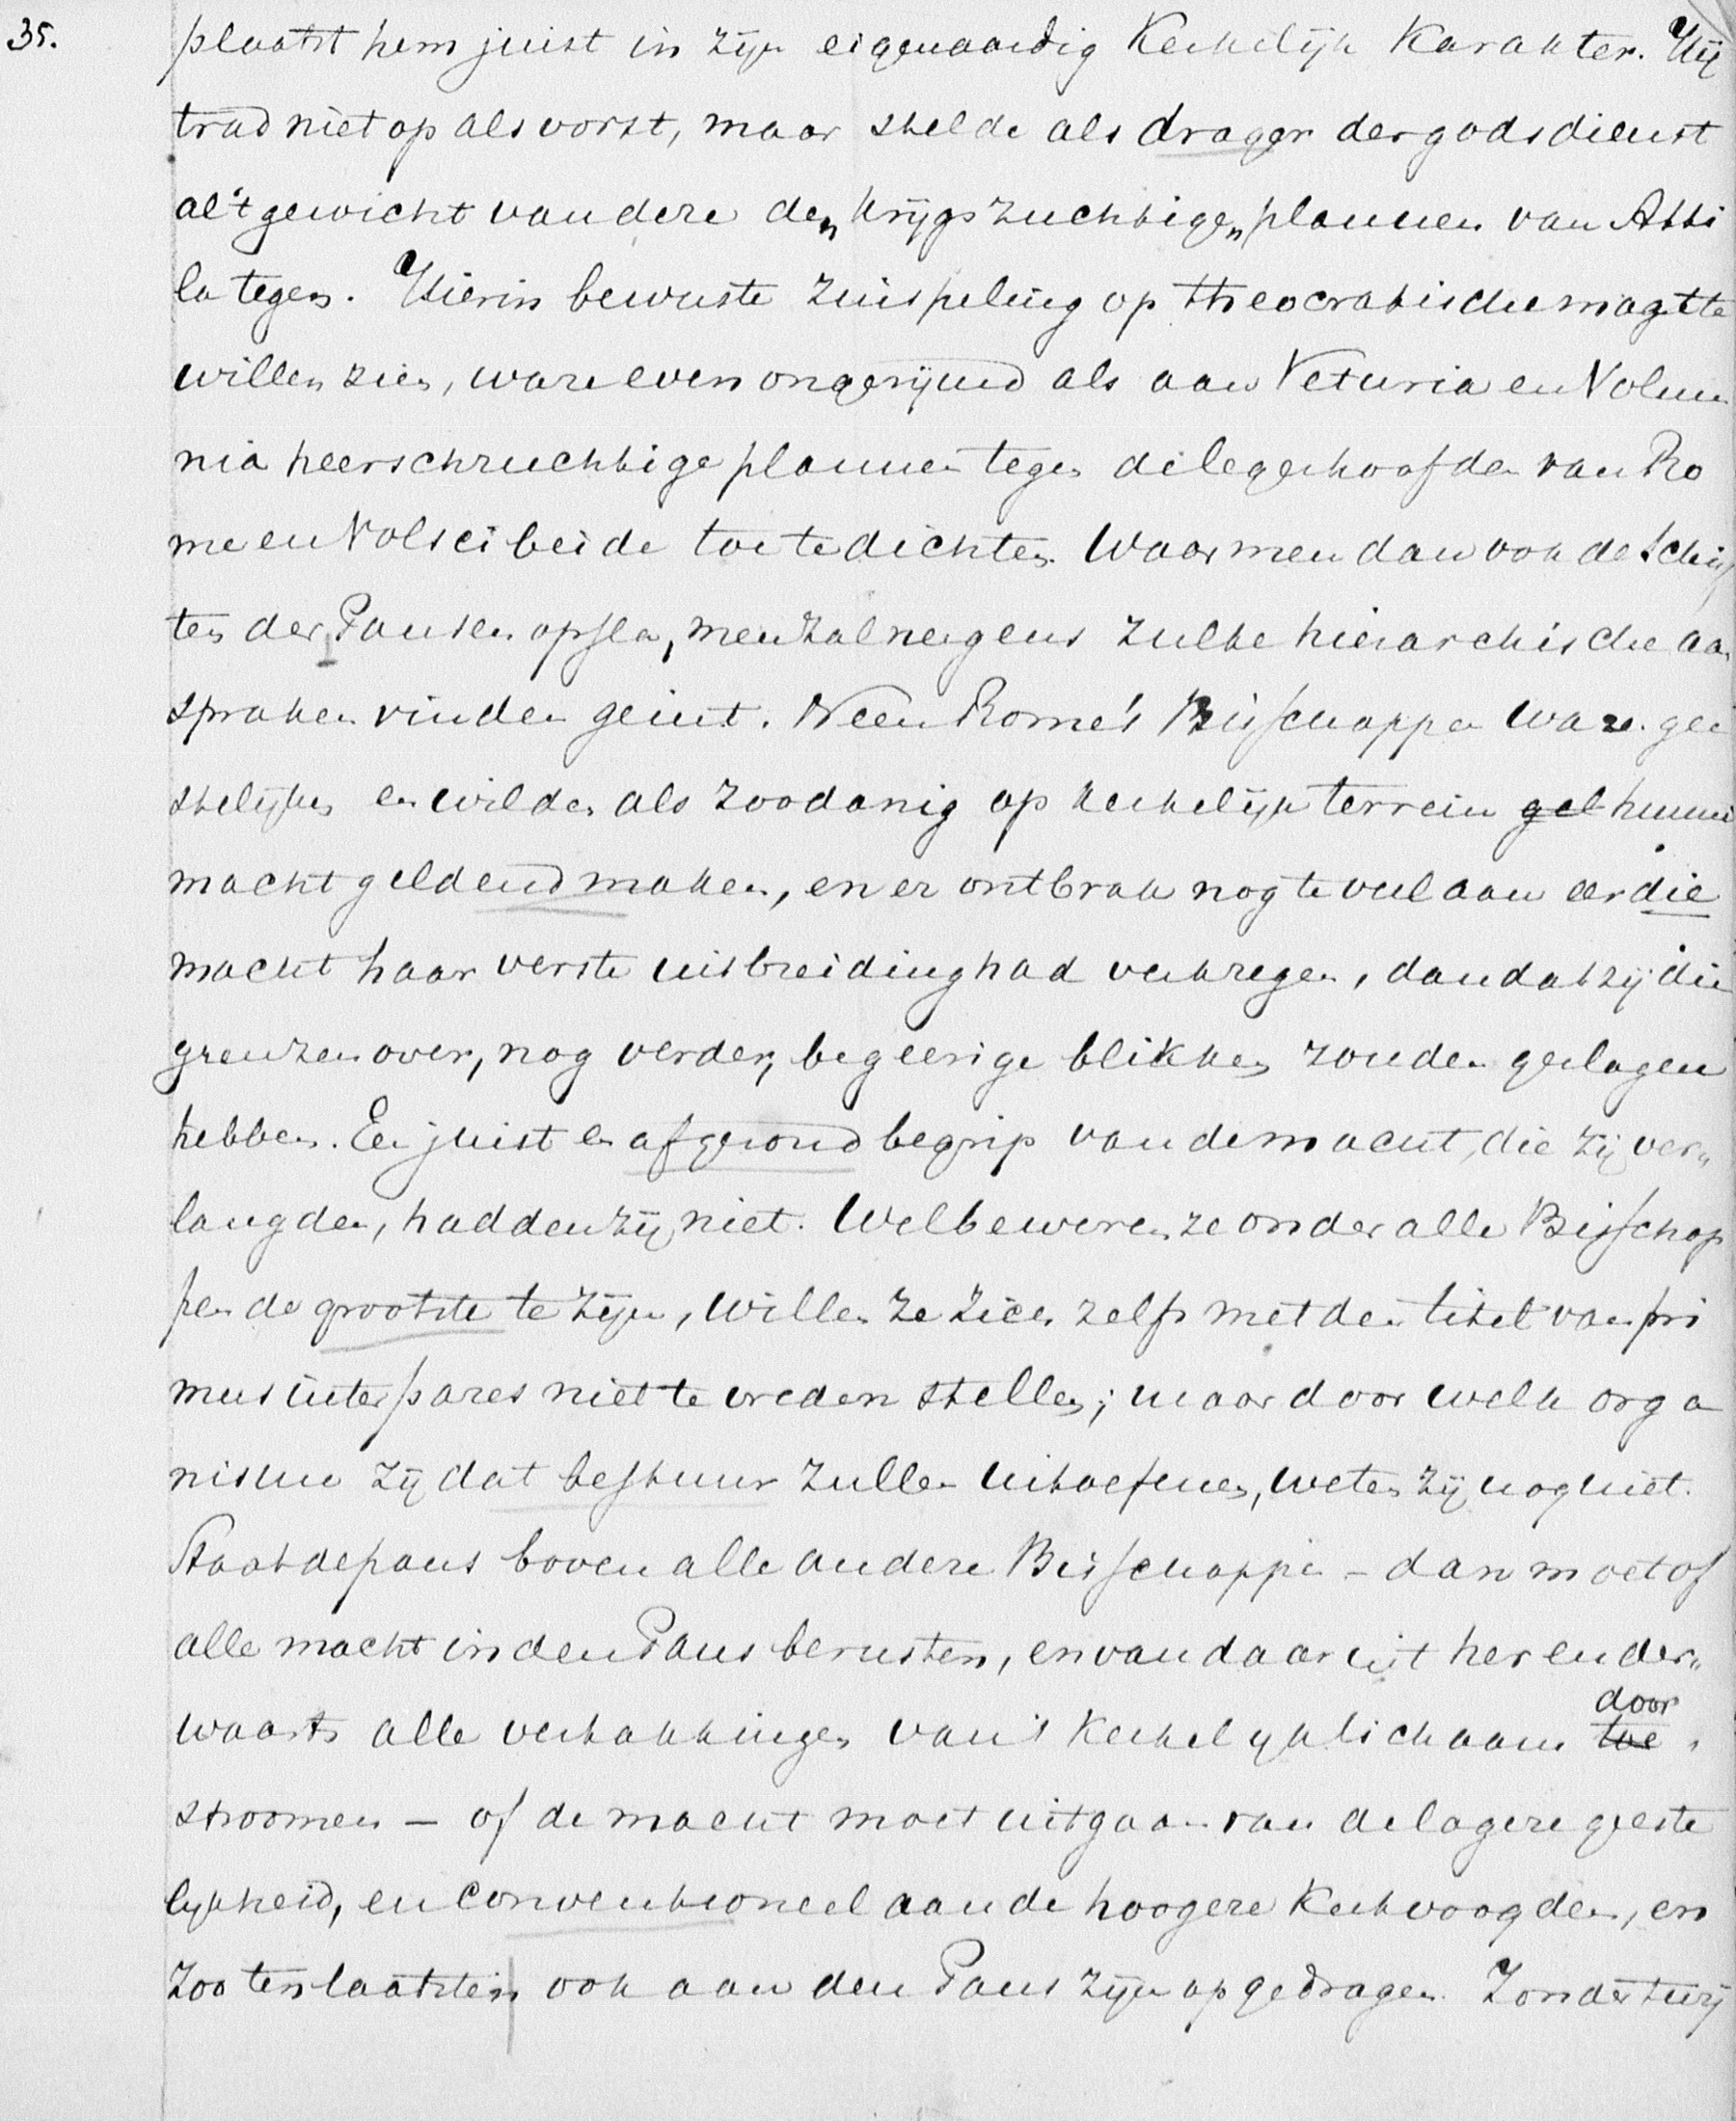 35.
plaatst hem juist in zijn eigenaardig Kerkelijk Karakter. Hij
trad niet op als vorst, maar stelde als drager der godsdienst
al 't gewicht van deze den krijgszuchtigen plannen van Atti
la tegen. Hierin bewuste zinspeling op theocratische magt te
willen zien, ware even ongerijmd als aan Veturia en Volum
nia heerschzuchtige plannen tegen de legerhoofden van Ro
me en Volsci beide toe te dichten. Waar men dan ook de schrif
ten der Pausen opsla, men zal nergens zulke hierarchische aan
spraken vinden geuit. Neen Rome's Bisschoppen waren gee
stelijken en wilden als zoodanig op kerkelijk terrein gel hunne
macht geldend maken, en er ontbrak nog te veel aan eer die
macht haar verste uitbreiding had verkregen, dan dat zij die
grenzen over, nog verder, begeerige blikken zouden geslagen
hebben. Een juist en afgerond begrip van de macht, die zij ver„
langden, hadden zij niet. Wel beweren ze onder alle Bisschop
pen de grootste te zijn, willen ze zich zelfs met den titel van pri
mus inter pares niet te vreden stellen; maar door welk orga
nisme zij dat bestuur zullen uitoefenen, weten zij nog niet.
Staat de paus boven alle andere Bisschoppen – dan moet of
alle macht in den Paus berusten, en van daar uit her en der„
waarts alle vertakkingen van 't Kerkelijk lichaam toe door
stroomen – of de macht moet uitgaan van de lagere geeste
lijkheid, en conventioneel aan de hoogere Kerkvoogden, en
zoo ten laatsten ook aan den Paus zijn opgedragen. Zonder twij